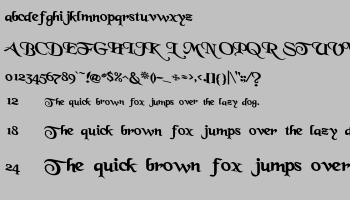 abcdefghijklmnopqrstuvwxyz
ABCDEFGHIJKLMNOPQRSTUVW
0123456789`~!@#$%^&*()-_+=><,.[]{}|\"':;/?
12 The quick brown fox jumps over the lazy dog.
18 The quick brown fox jumps over the lazy d
24 The quick brown fox jumps over